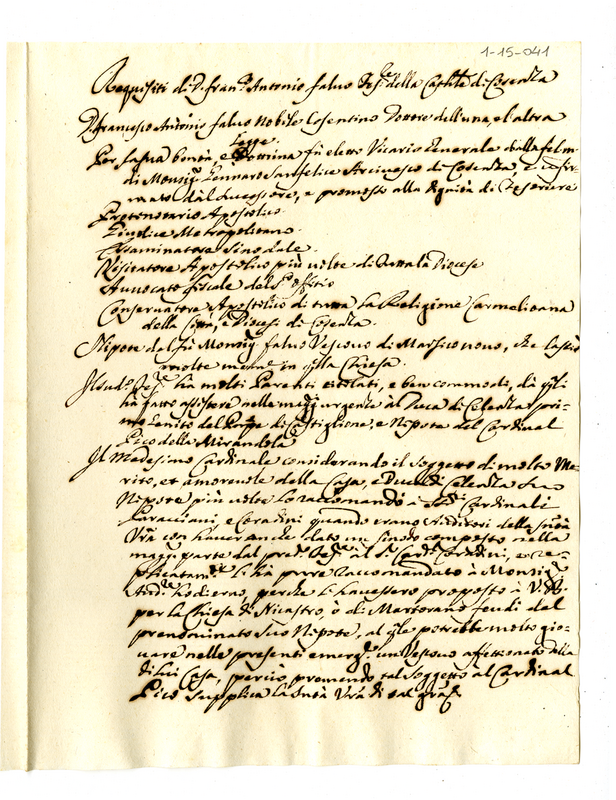 1-15-041
Requisiti di D. Fran.co Antonio Salvo Tes.re della Cattle di Cosenza
D. Francesco Antonio Salvo Nobile Cosentino Dottore dell'una, e l'altra
Legge
Per la sua bontà, e Dottrina fù eletto Vicario Generale dalla fel. m.
di Monsig.r Gennaro Sanfelice Arcivesco di Cosenza, e confir-
mato dal Successore, e promosso alla Dignità di Tesoriere
Protonotario Apostolico
Giudice Metropolitano
Essaminatore Sinodale
Visitatore Apostolico più volte di tutta la Diocese
Avvocato fiscale del S.to Offitio
Conservatore Apostolico di tutta la Religione Carmelitana
della Città, e Diocesi di Cosenza.
Nipote del fù Monsig.r Salvo Vescovo di Marsico nuovo, che lasciò
molte mem.e in q.lla Chiesa.
Il sud.o Tes.re ha molti Parenti titolati, e ben commodi, da q.li
ha fatto assistere nelle magg.ri urgenze al Duca di Celenza pri-
mo Genito del Prn.pe di Castiglione, e Nipote del Cardinal
Pico della Mirandola
Il Medesimo Cardinale considerando il Soggetto di molto Me-
rito, et amorevole della Casa, e Duca di Celenza suo
Nipote più volte lo raccomandò à SS.ri Cardinali
Caracciani, e Coradini quando erano Auditori della S.tità
V.ra con haverende dato un Sinodo composto nella
magg.r parte dal pred.o Tes.re al S.r Card.l Coradini, e re-
plicatam.te li hà pure raccomandato à Monsig.r
Aud.re hodierno, perche li havessero proposto à V. B.
per la Chiesa di Nicastro, ò di Martorano feudi del
prenominato Suo Nipote, al q.le potrebbe molto gio-
vare nelle presenti emerg.e un Vescovo affettionato alla
di lui Casa, perciò premendo tal Soggetto al Cardinal
Pico Supplica la S.tità V.ra di tal graz.a